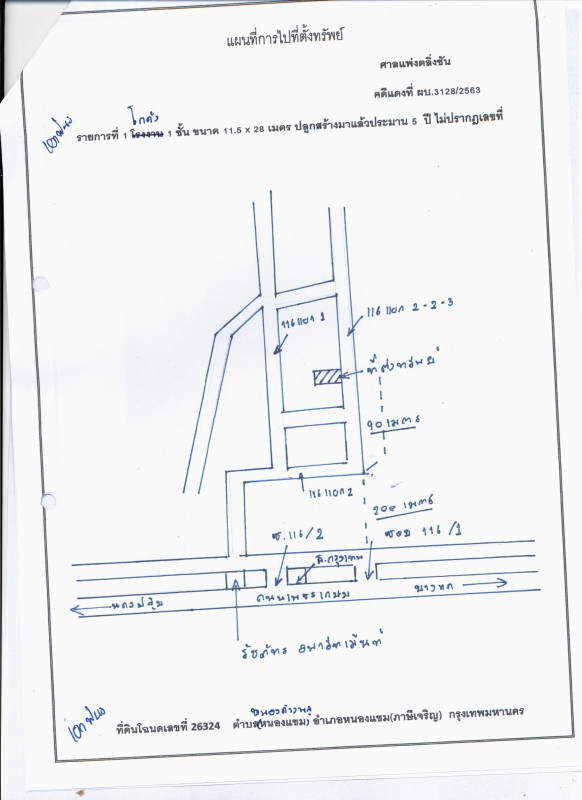 แผนที่การไปที่ตั้งทรัพย์
ศาลแพ่งตลิ่งชัน
คดีแดงที่ ผบ.3128/2563
โกดัง
รายการที่ 1 โรงงาน 1 ชั้น ขนาด 11.5 x 28 เมตร ปลูกสร้างมาแล้วประมาน 5 ปี ไม่ปรากฏเลขที่
116 แยก 1
116 แยก 2-2-3
ที่ตั้งทรัพย์
90 เมตร
116 แยก 2
200 เมตร
ซ.116/2
ซอย 116/1
ธ.กรุงเทพ
นครปฐม
ถนนเพชรเกษม
บางแค
อพาร์ทเม้นท์
หนองค้างพลู
ที่ดินโฉนดเลขที่ 26324 ตำบล(หนองแขม) อำเภอหนองแขม(ภาษีเจริญ) กรุงเทพมหานคร